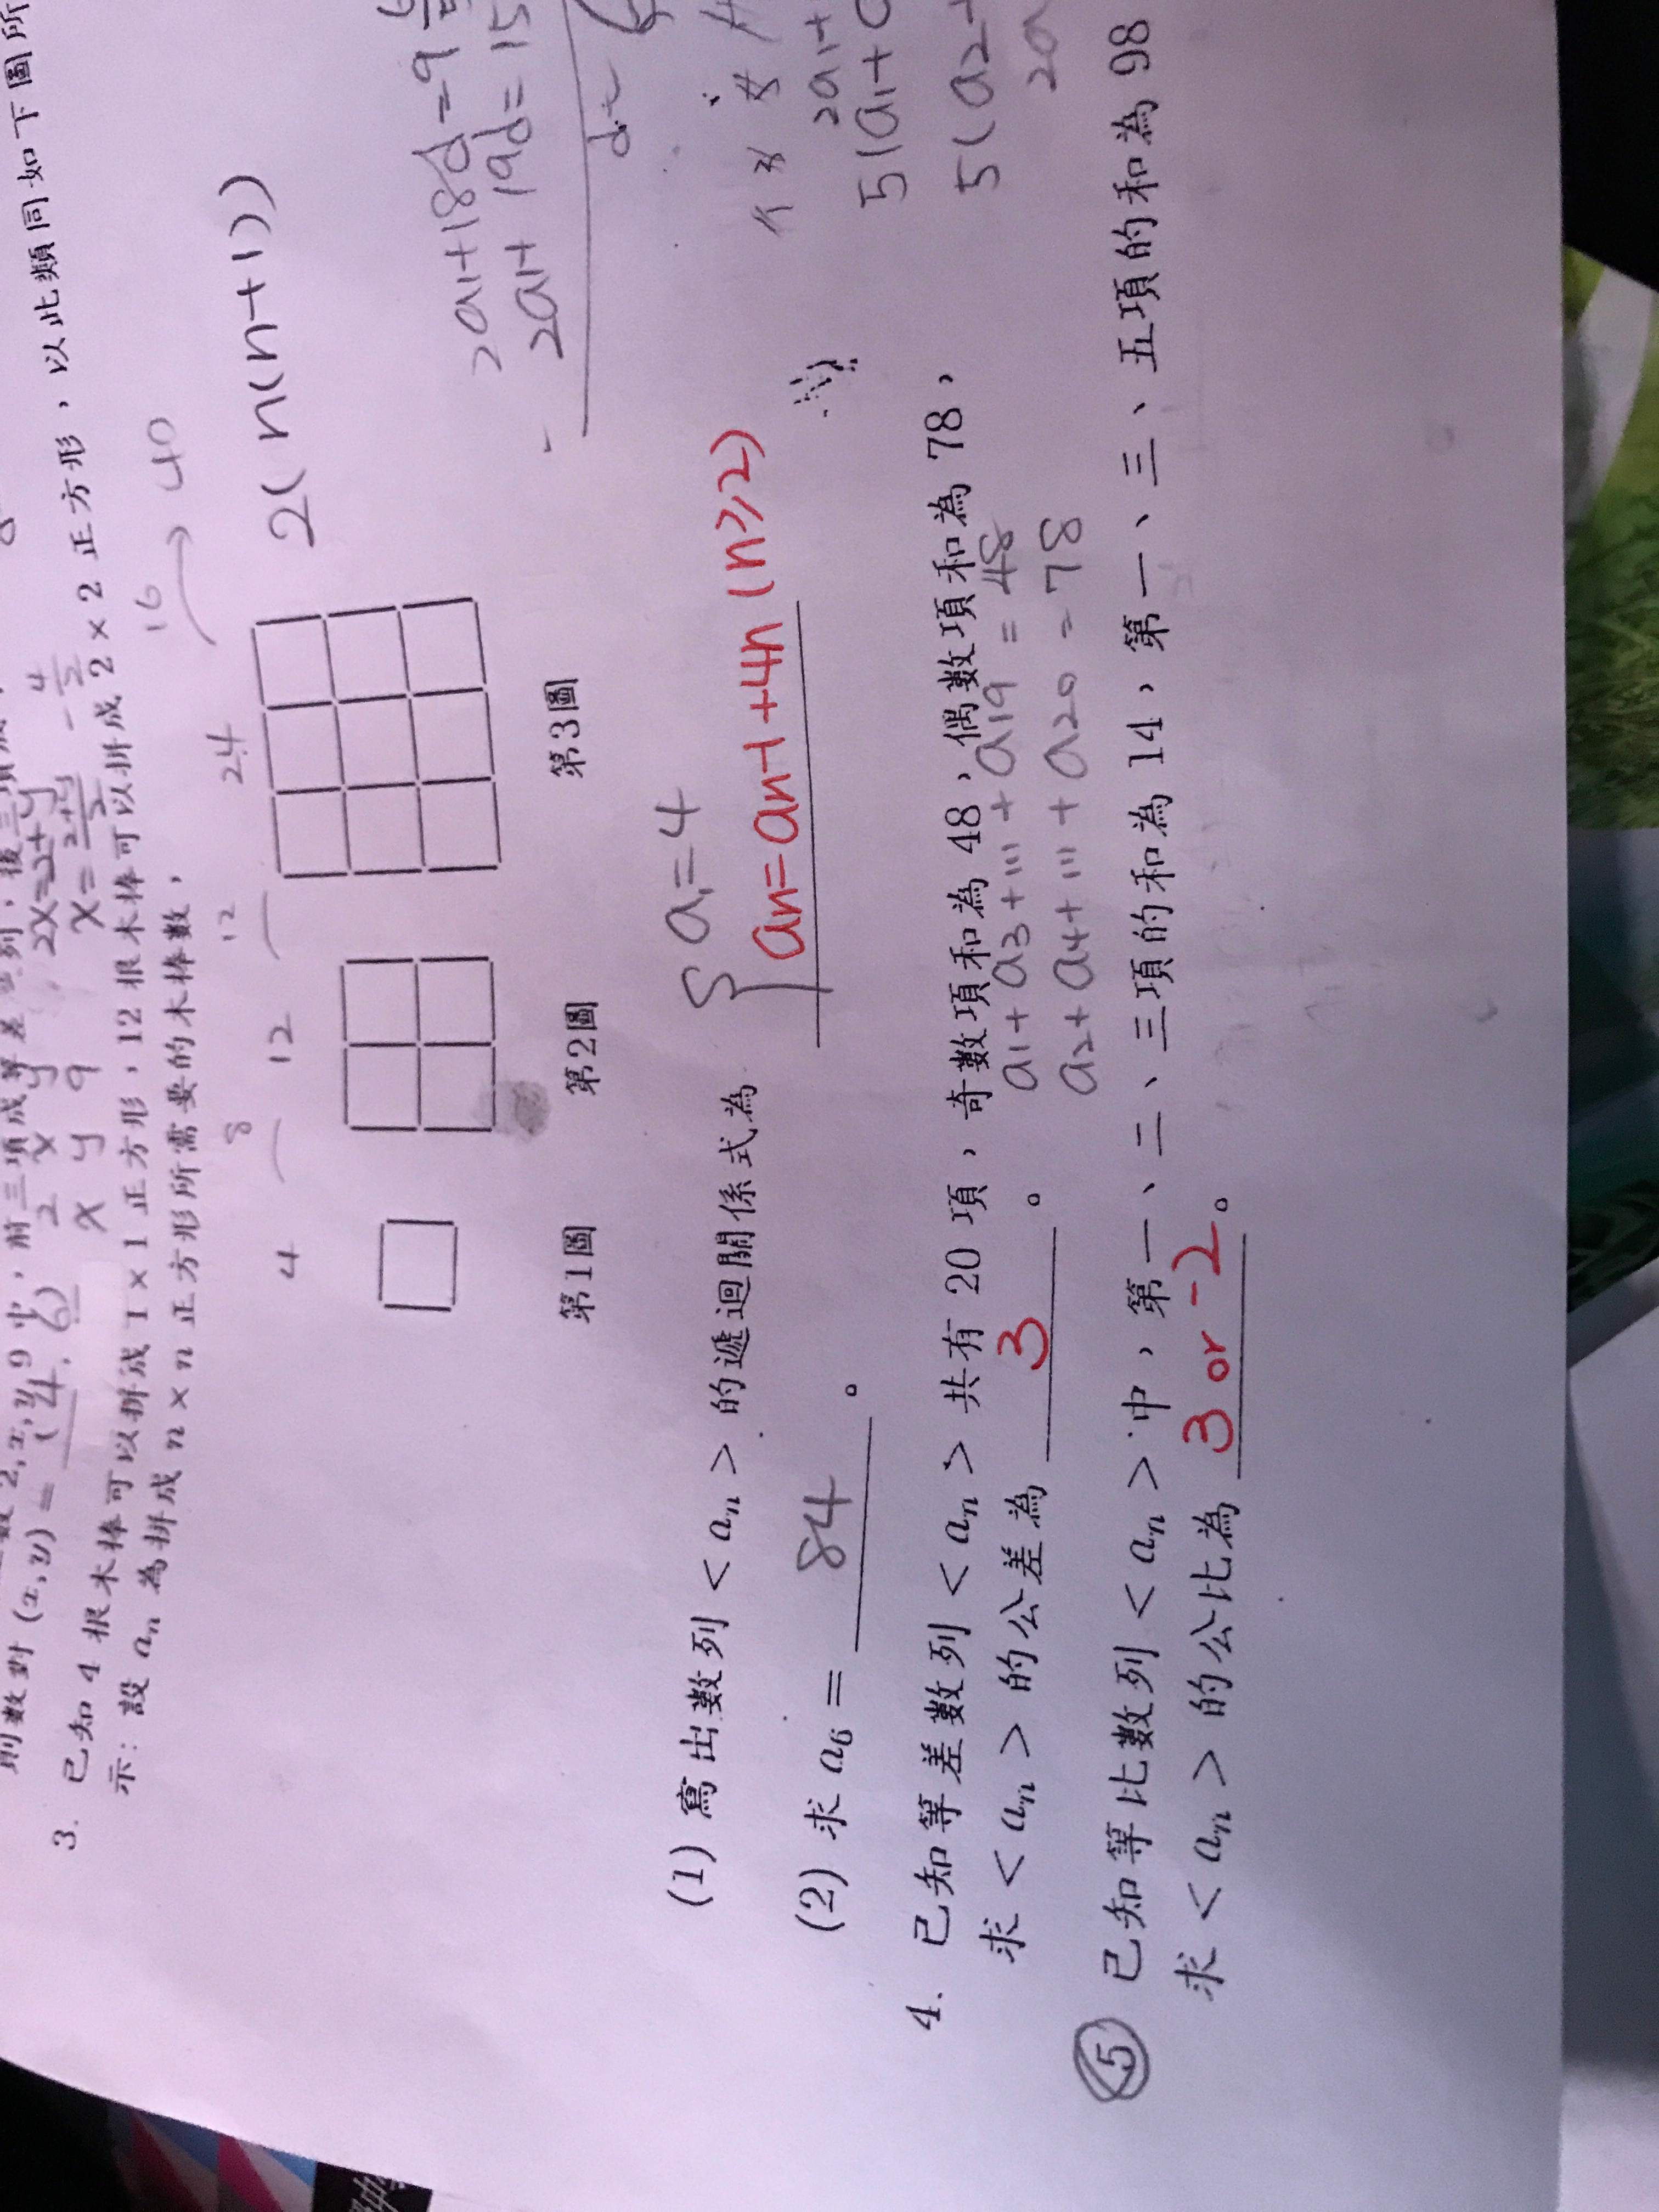 2, x, y, 9 中,前三項成等差數列,後三項成
2 x y 2x=2+y
x y 9
則數對 (x,y) = (4,6)
3. 已知 4 根木棒可以拼成 1×1 正方形,12 根木棒可以拼成 2×2 正方形,以此類同如下圖所
示:設 an 為拼成 n×n 正方形所需要的木棒數,
4 8 12 12 24 16 → 40
2(n(n+1))
第1圖 第2圖 第3圖
2a1+18d=9
2a1+19d=15
(1) 寫出數列 <an> 的遞迴關係式為 a1=4
an=an-1+4n (n≥2)
(2) 求 a6 = 84 。
4. 已知等差數列 <an> 共有 20 項,奇數項和為 48,偶數項和為 78,
a1+a3+...+a19=48
求 <an> 的公差為 3 。
a2+a4+...+a20=78
2a1+
5(a1+
5(a2+
5 已知等比數列 <an> 中,第一、二、三項的和為 14,第一、三、五項的和為 98
求 <an> 的公比為 3 or -2 。